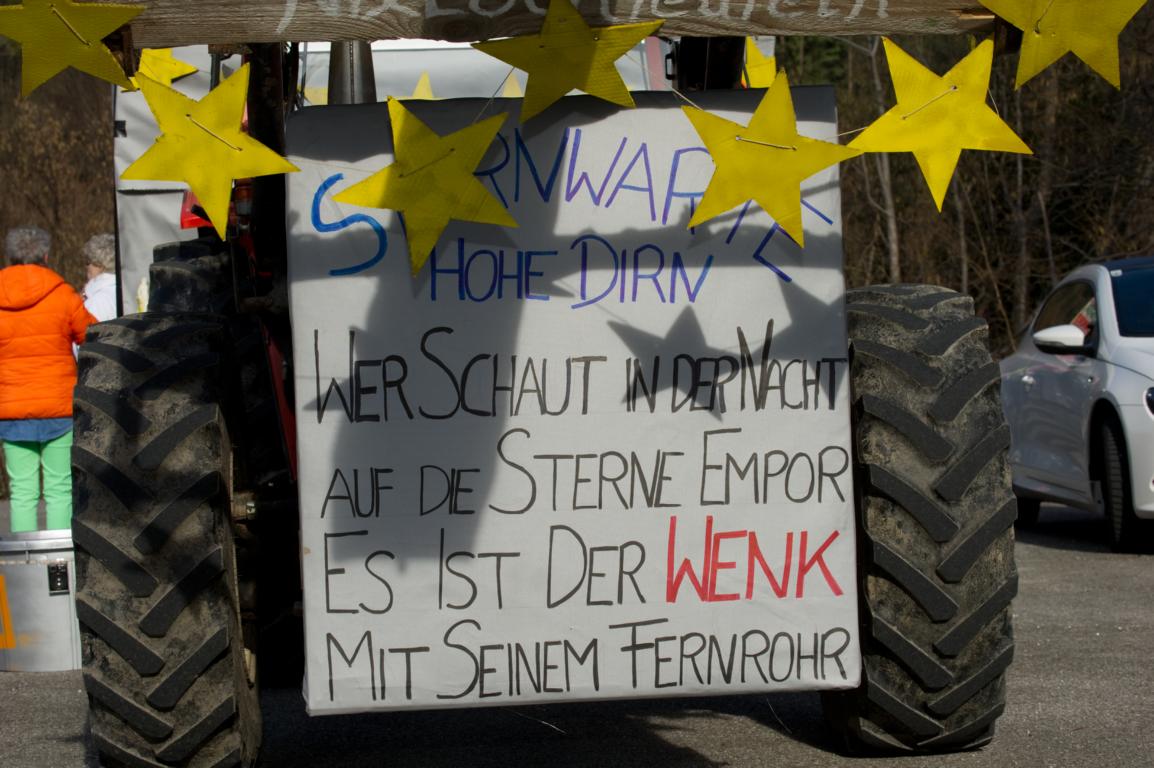 STERNWARTE
HOHE DIRN
WER SCHAUT IN DER NACHT
AUF DIE STERNE EMPOR
ES IST DER WENK
MIT SEINEM FERNROHR